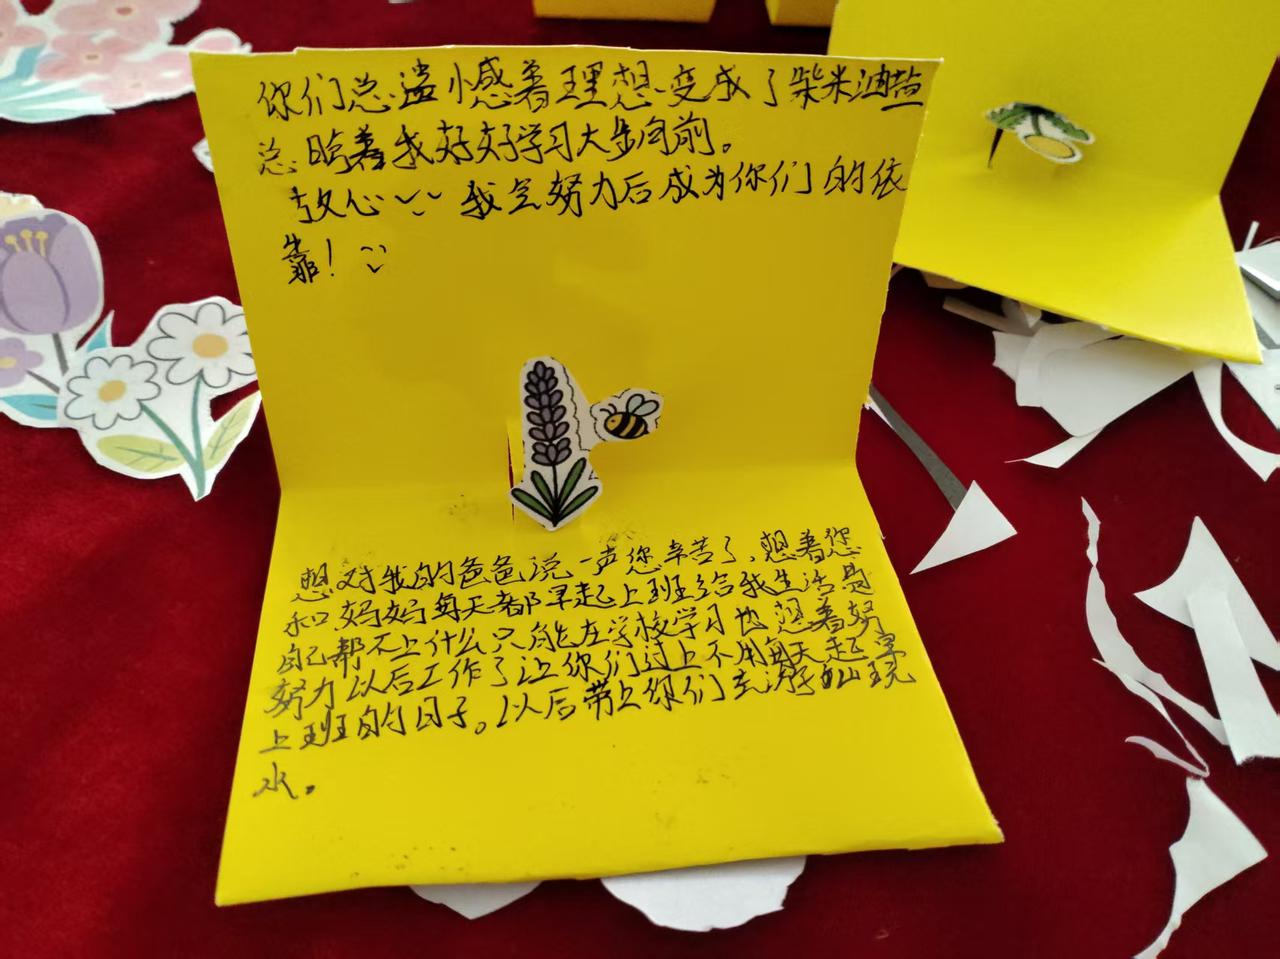 你们总遗憾着理想变成了柴米油盐
总盼着我好好学习大步向前。
放心 我会努力后成为你们的依
靠！
想对我的爸爸说一声您辛苦了，想着您
和妈妈每天都早起上班给我生活是
自己帮不上什么只能在学校学习也想着努
努力以后工作了让你们过上不用每天起早
上班的日子。以后带上你们去游山玩
水。